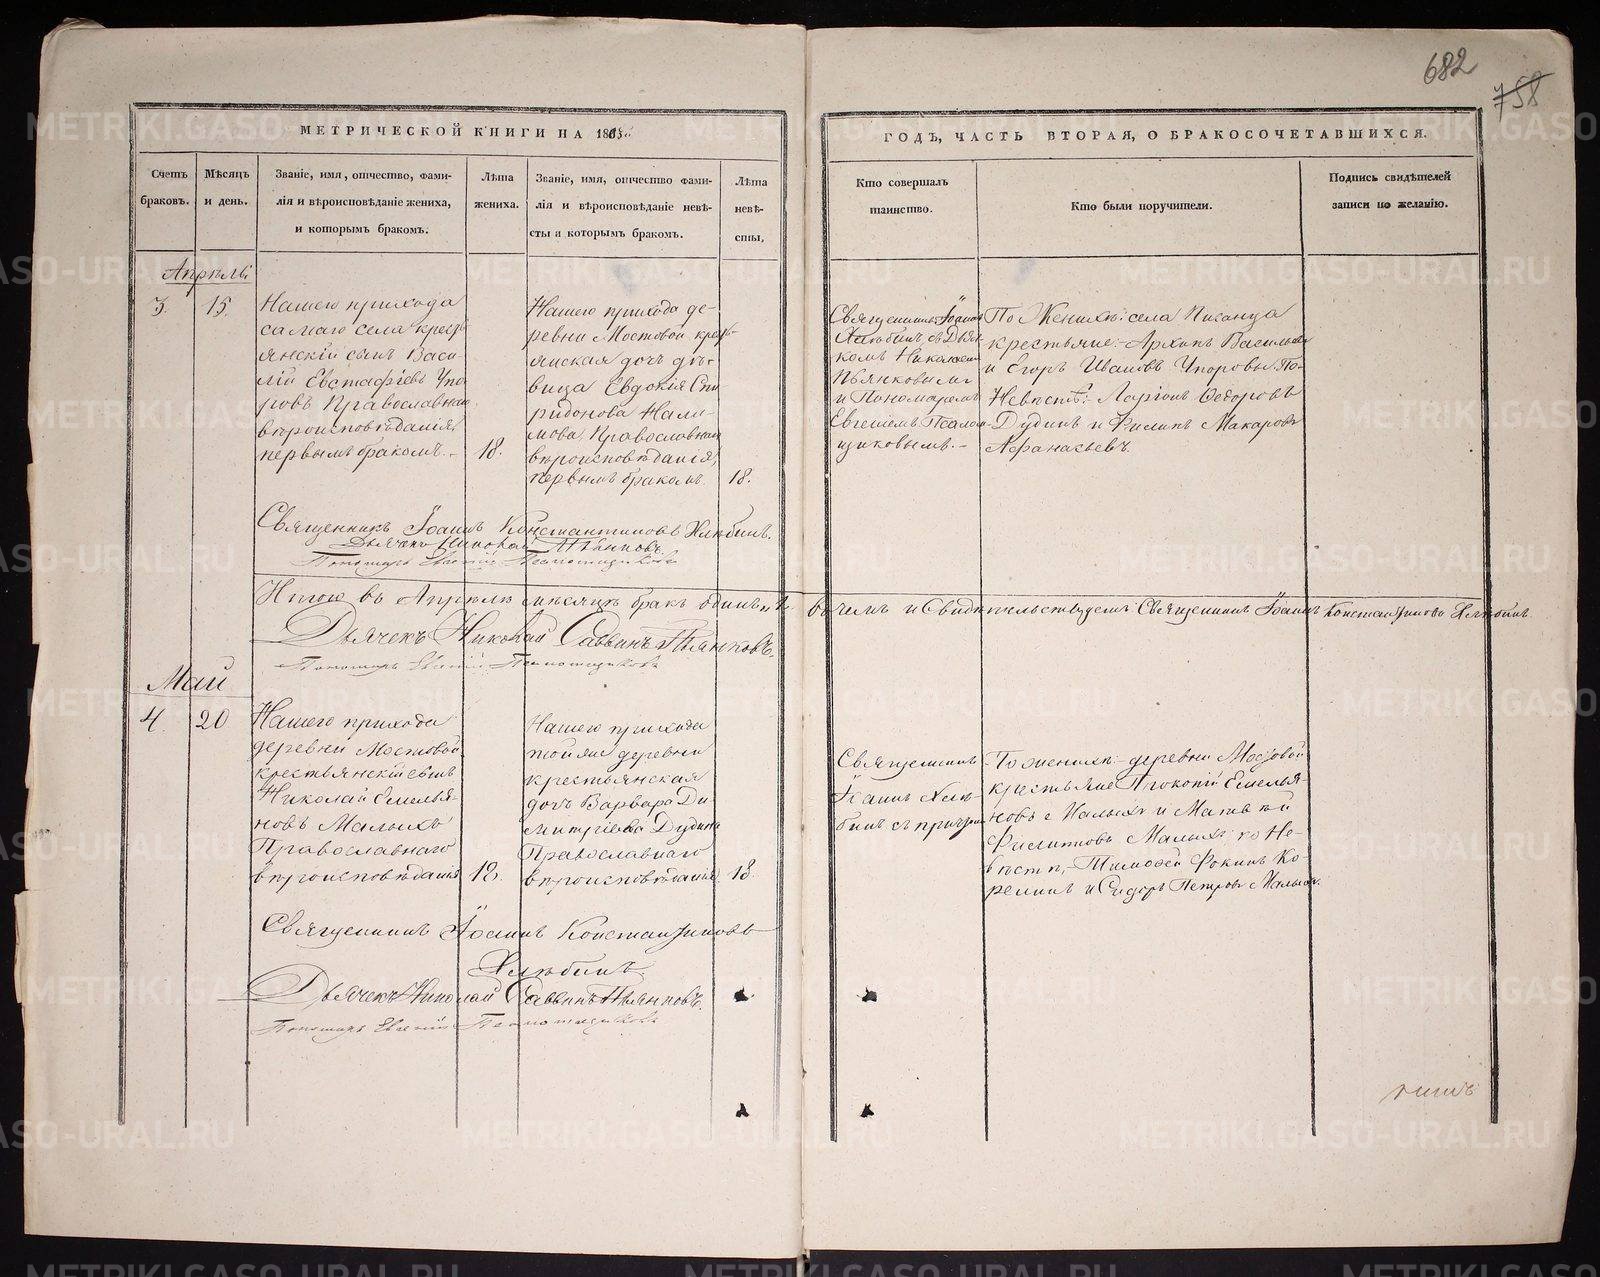 682
758
МЕТРИЧЕСКОЙ КНИГИ НА 186
ГОДЪ, ЧАСТЬ ВТОРАЯ, О БРАКОСОЧЕТАВШИХСЯ.
Счетъ браковъ.
Мѣсяцъ и день.
Званіе, имя, отчество, фами-
лія и вѣроисповѣданіе жениха,
и которымъ бракомъ.
Лѣта
жениха.
Званіе, имя, отчество фами-
лія и вѣроисповѣданіе невѣ-
сты и которымъ бракомъ.
Лѣта
невѣ-
сты,
Кто совершалъ
таинство.
Кто были поручители.
Подпись свидѣтелей
записи по желанію.
Апрѣль
3. 15.
Нашего прихода
самаго села крестъ
янскій сынъ Васи
лій Евстафіевъ Упо
ровъ Православнаго
вѣроисповѣданія,
первымъ бракомъ.
18.
Нашего прихода де-
ревни Мостовой крест-
янская дочь дѣ-
вица Евдокія Спи
ридонова Нали-
мова, Православнаго
вѣроисповѣданія,
первымъ бракомъ.
18.
Священникъ Іоаннъ
Хлѣбинъ съ Дьяч-
комъ Николаем
Пьянковымъ
и Пономаремъ
Евгеніемъ Псалом-
щиковымъ.-
По Женихѣ: села Писанца
крестьяне: Архипъ Васильевъ
и Егоръ Ивановъ Упоровы. По
Невѣстѣ: Ларіонъ Ѳедоровъ
Дудинъ и Филипъ Макаровъ
Афанасьевъ.
Священникъ Іоаннъ Константиновъ Хлѣбинъ.
Дьячекъ Николай Пьянковъ.
Пономарь Евгеній Псаломщиковъ
Итого въ Апрѣлѣ мѣсяцѣ бракъ одинъ "1"
въ чемъ и Свидѣтельствуемъ: Священникъ Іоаннъ Константиновъ Хлѣбинъ.
Дьячекъ Николай Саввинъ Пьянковъ.
Пономарь Евгеній Псаломщиковъ
Май
4. 20
Нашего прихода
деревни Мостовой
крестьянскій сынъ
Николай Емелья-
новъ Малыхъ
Православнаго
вѣроисповѣданія
18.
Нашего прихода
той же деревни
крестьянская
дочь Варвара Ди-
митріева Дудина
Православнаго
вѣроисповѣданія.
18.
Священникъ
Іоаннъ Хлѣ-
бинъ съ причтомъ
По женихѣ: деревни Мостовой
крестьяне Прокопій Емелья-
новъ Малыхъ и Матвѣй
Филиповъ Малыхъ; по Не-
вѣстѣ, Тимоѳей Фокинъ Ко-
релинъ и Сидоръ Петровъ Малыхъ.
Священникъ Іоаннъ Константиновъ
Хлѣбинъ.
Дьячекъ Николай Саввинъ Пьянковъ.
Пономарь Евгеній Псаломщиковъ
METRIKI.GASO-URAL.RU